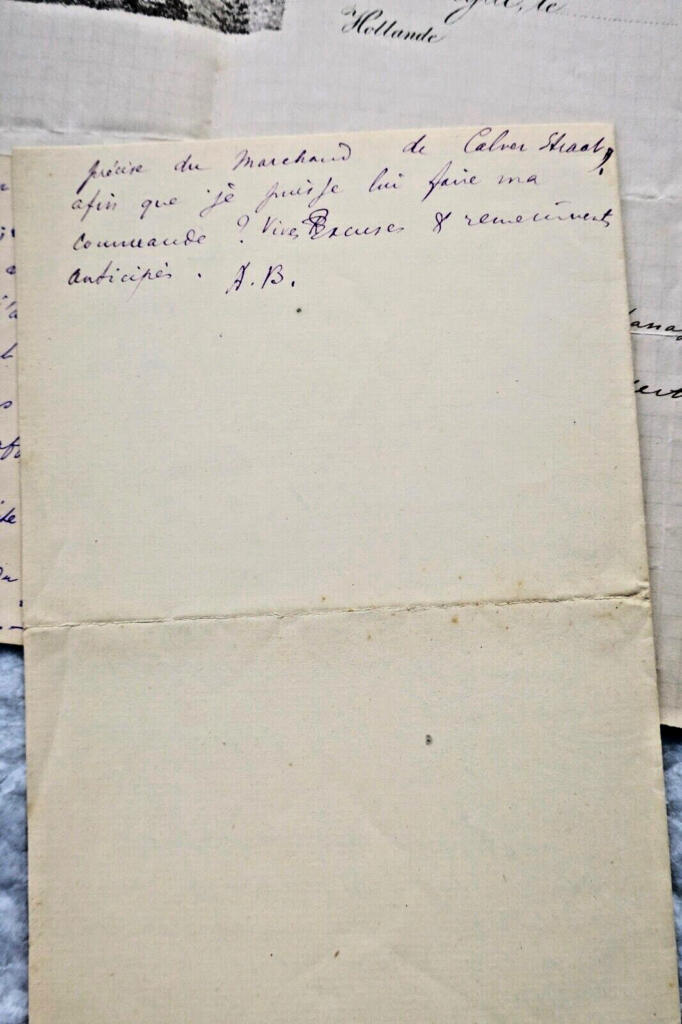 Hollande
précise du Marchand de Calver Straat,
afin que je puisse lui faire ma
commande ? Vives Excuses & remerciments
anticipés. A.B.